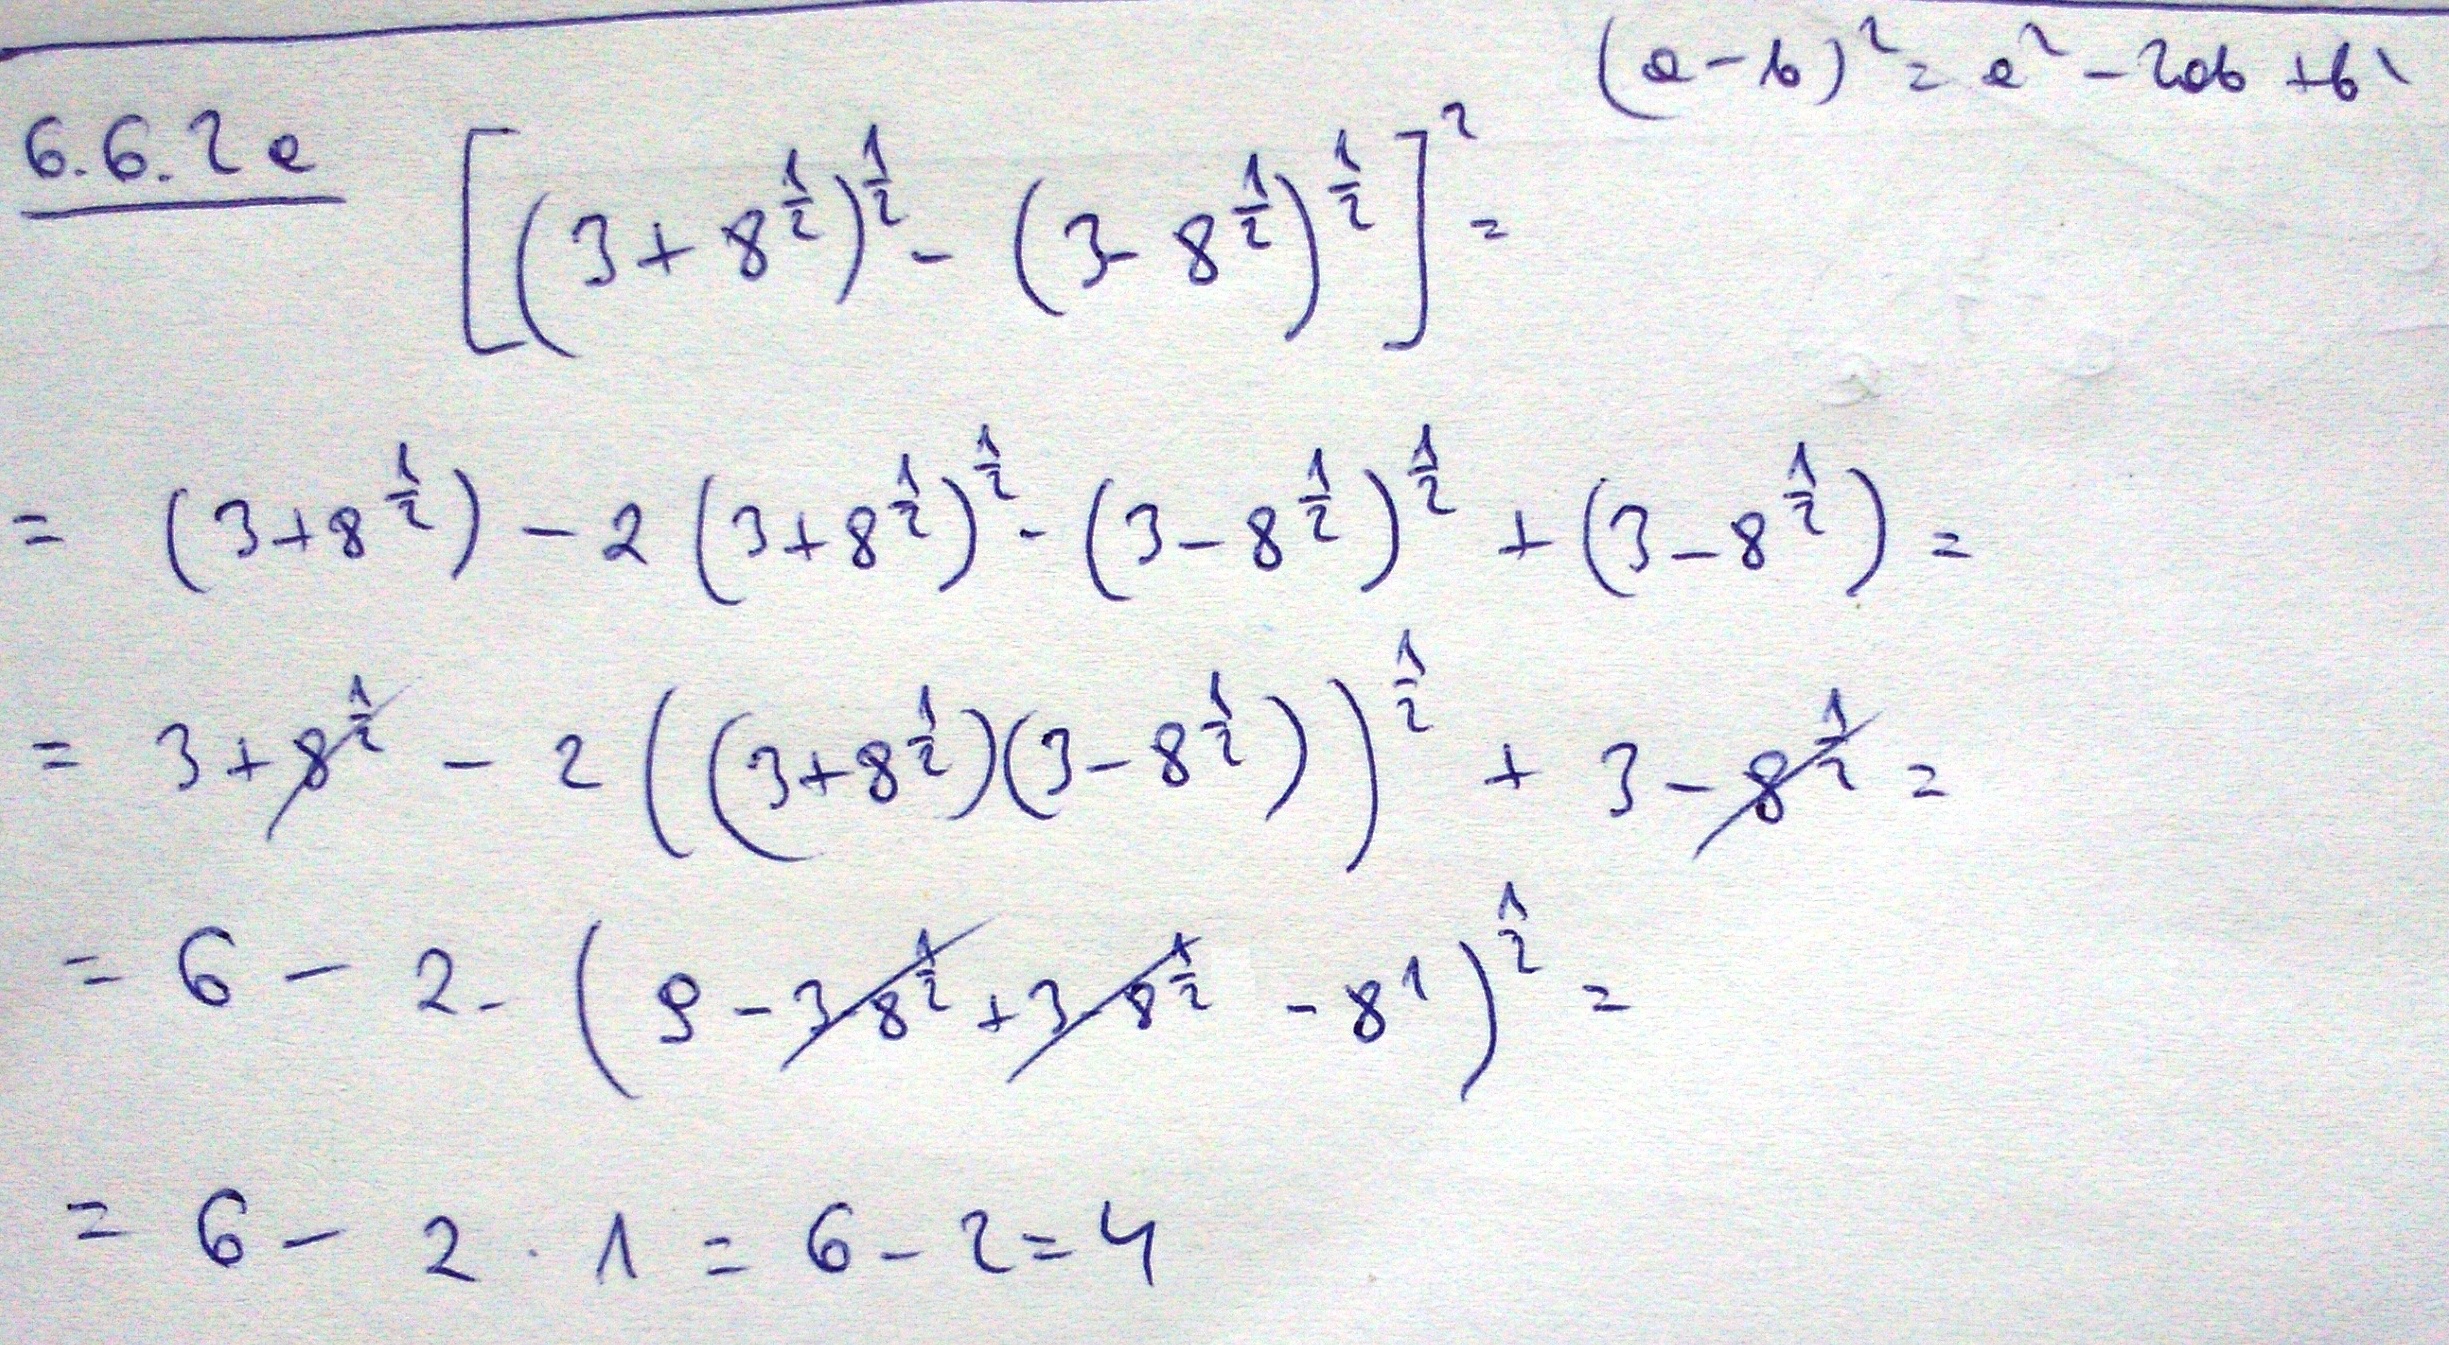 (a-b)² = a² - 2ab + b²
6.6.2a [(3+8^{1/2})^{1/2} - (3-8^{1/2})^{1/2}]² =
= (3+8^{1/2}) - 2(3+8^{1/2})^{1/2} · (3-8^{1/2})^{1/2} + (3-8^{1/2}) =
= 3+8^{1/2} - 2((3+8^{1/2})(3-8^{1/2}))^{1/2} + 3-8^{1/2} =
= 6 - 2 · (9-3·8^{1/2}+3·8^{1/2} -8¹)^{1/2} =
= 6 - 2 · 1 = 6-2=4